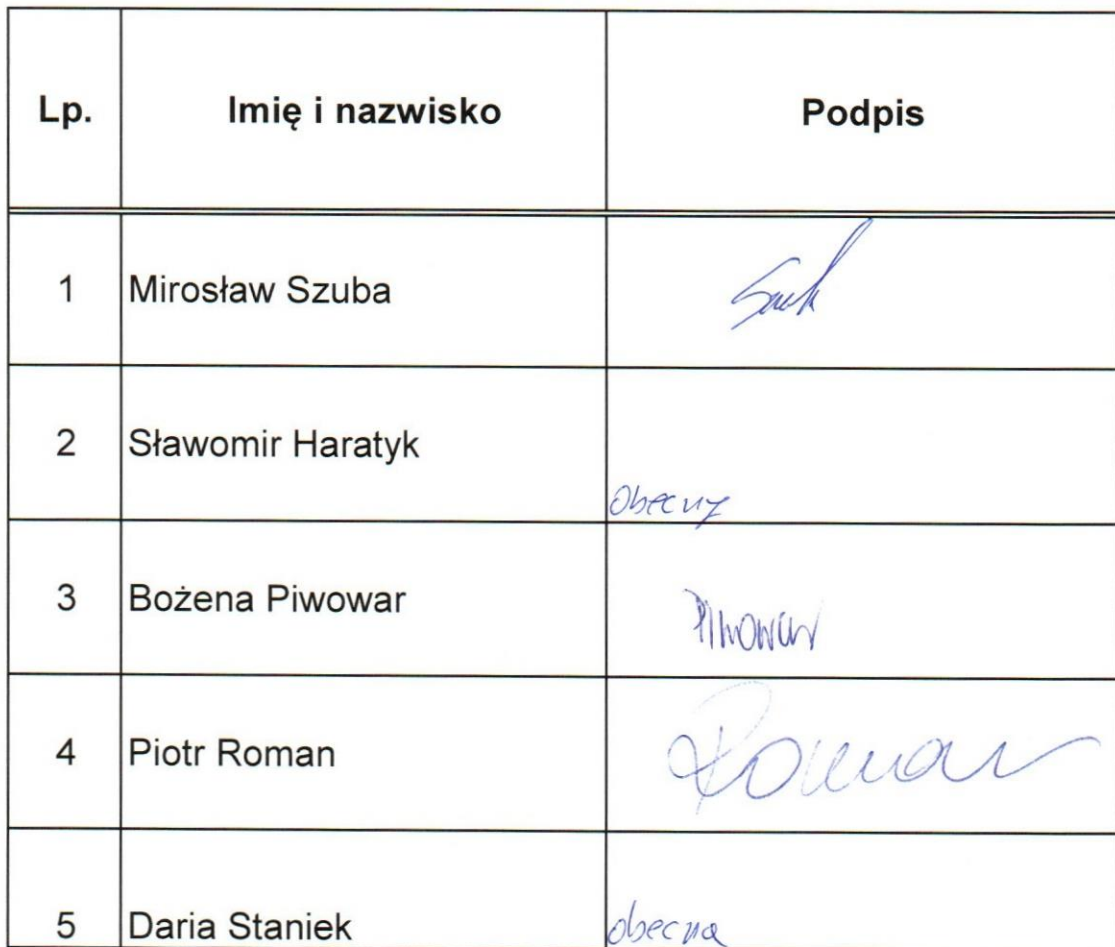 Lp. Imię i nazwisko Podpis
1 Mirosław Szuba
2 Sławomir Haratyk obecny
3 Bożena Piwowar Piwowar
4 Piotr Roman Roman
5 Daria Staniek obecna